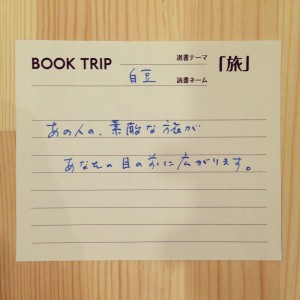 BOOK TRIP
選書テーマ
「旅」
白豆
読書ネーム
あの人の、素敵な旅が
あなたの目の前に広がります。